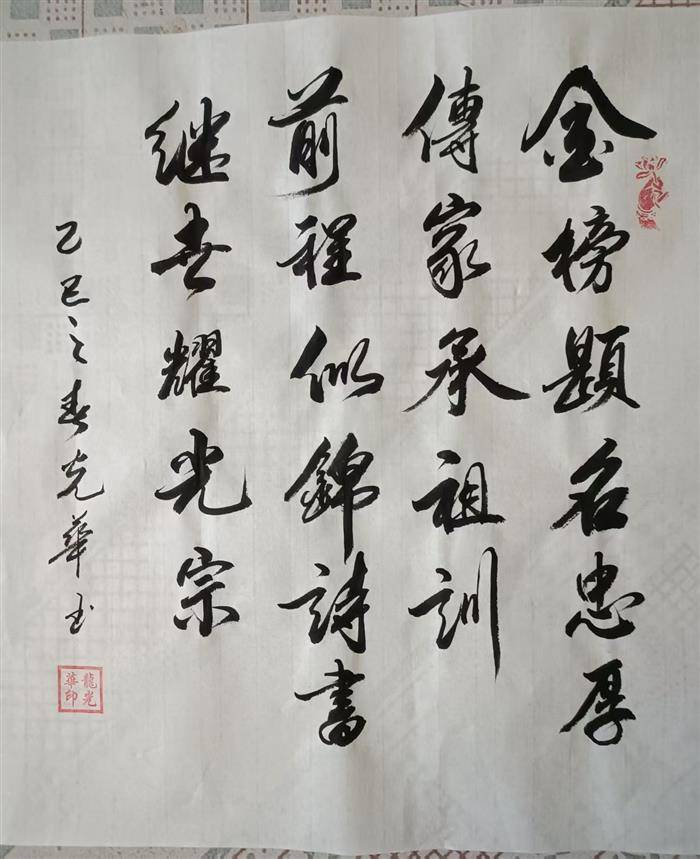 金榜題名忠厚
傳家承祖訓
前程似錦詩書
继世耀光宗
乙巳之春光華书
龍光華印